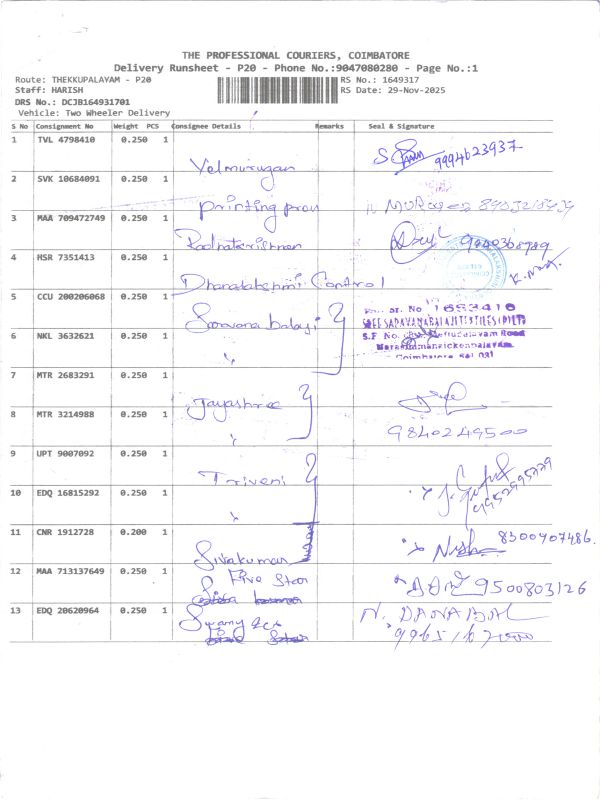 THE PROFESSIONAL COURIERS, COIMBATORE
Delivery Runsheet - P20 - Phone No.:9047080280 - Page No.:1
Route: THEKKUPALAYAM - P20 RS No.: 1649317
Staff: HARISH RS Date: 29-Nov-2025
DRS No.: DCJB164931701
Vehicle: Two Wheeler Delivery
S No Consignment No Weight PCS Consignee Details Remarks Seal & Signature
1 TVL 4798410 0.250 1 Velmurugan 9994623937
2 SVK 10684091 0.250 1 Printing
3 MAA 709472749 0.250 1 Radhakrishnan
4 HSR 7351413 0.250 1 Dhanalakshmi Control
5 CCU 200206068 0.250 1 Saravana balaji 1653416
6 NKL 3632621 0.250 1 " S.F No.
Narasimmanaickenpalayam,
Coimbatore 641 031
7 MTR 2683291 0.250 1 Jayashree
8 MTR 3214988 0.250 1 " 9840249500
9 UPT 9007092 0.250 1 Triveni
10 EDQ 16815292 0.250 1 " 9952995779
11 CNR 1912728 0.200 1 Sivakumar 8300907486.
12 MAA 713137649 0.250 1 Five Star 9500803126
13 EDQ 20620964 0.250 1 Swamy N. DANABAL